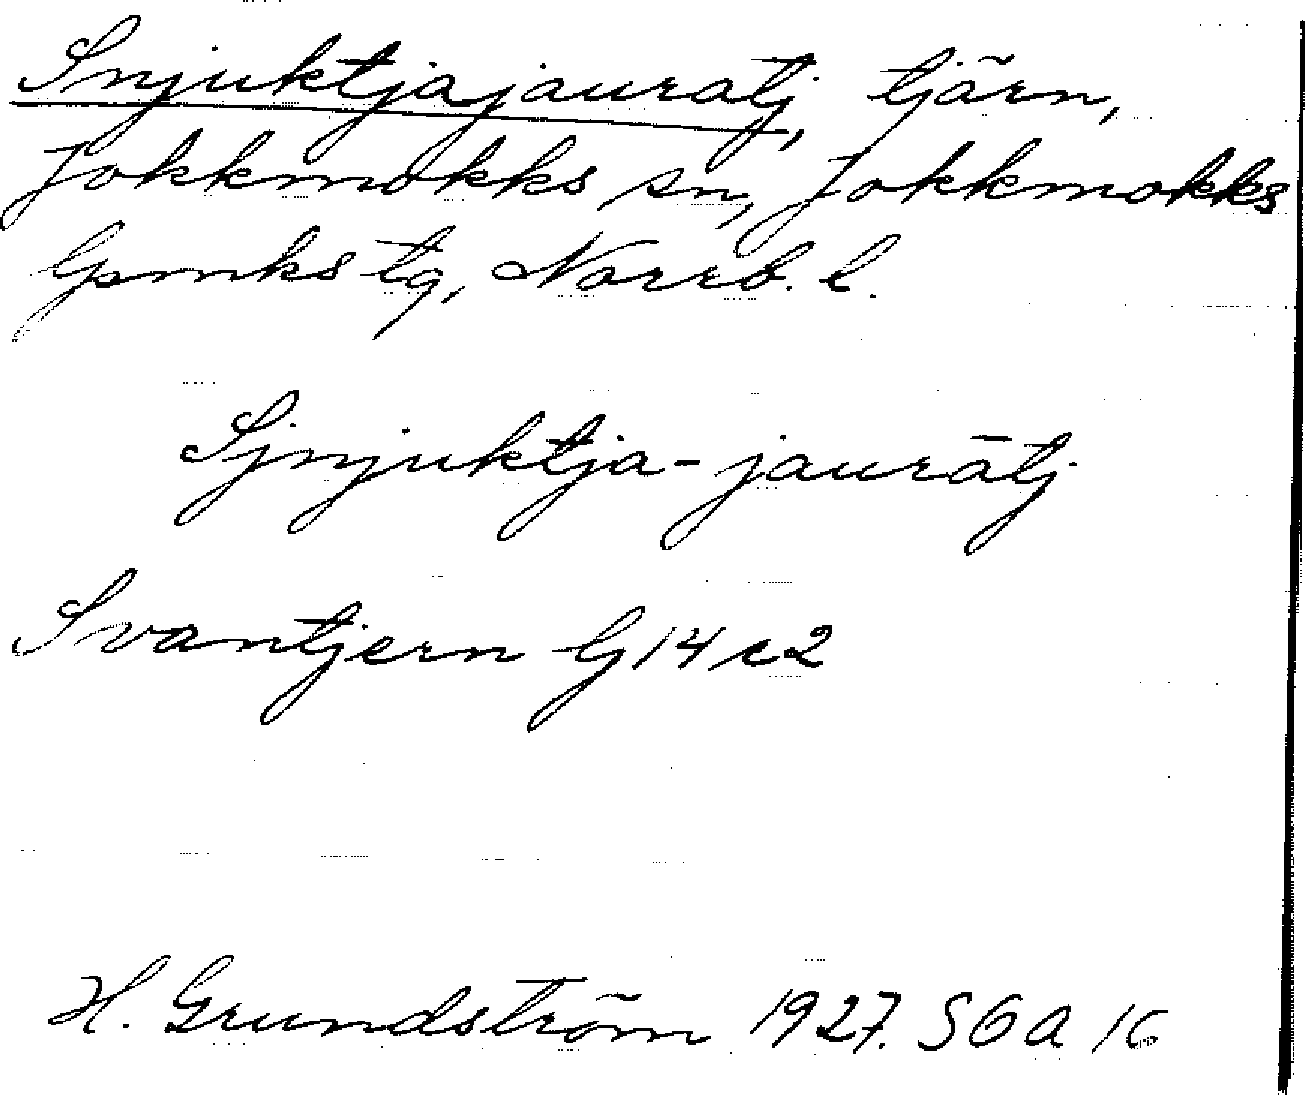 Snjuktjajauratj, tjärn,
Jokkmokks sn, Jokkmokks
lpmks tg, Norrb. l.
Sjnjuktja-jaurātj
Svantjern G14c2
H. Grundström 1927. SOA 16